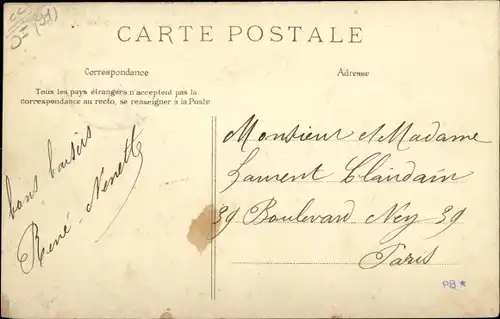 CARTE POSTALE
Correspondance
Tous les pays étrangers n'acceptent pas la
correspondance au recto, se renseigner à la Poste
bons baisers
René - Nenette
Adresse
Monsieur et Madame
Laurent Claindain
39 Boulevard Ney 39
Paris
PB *